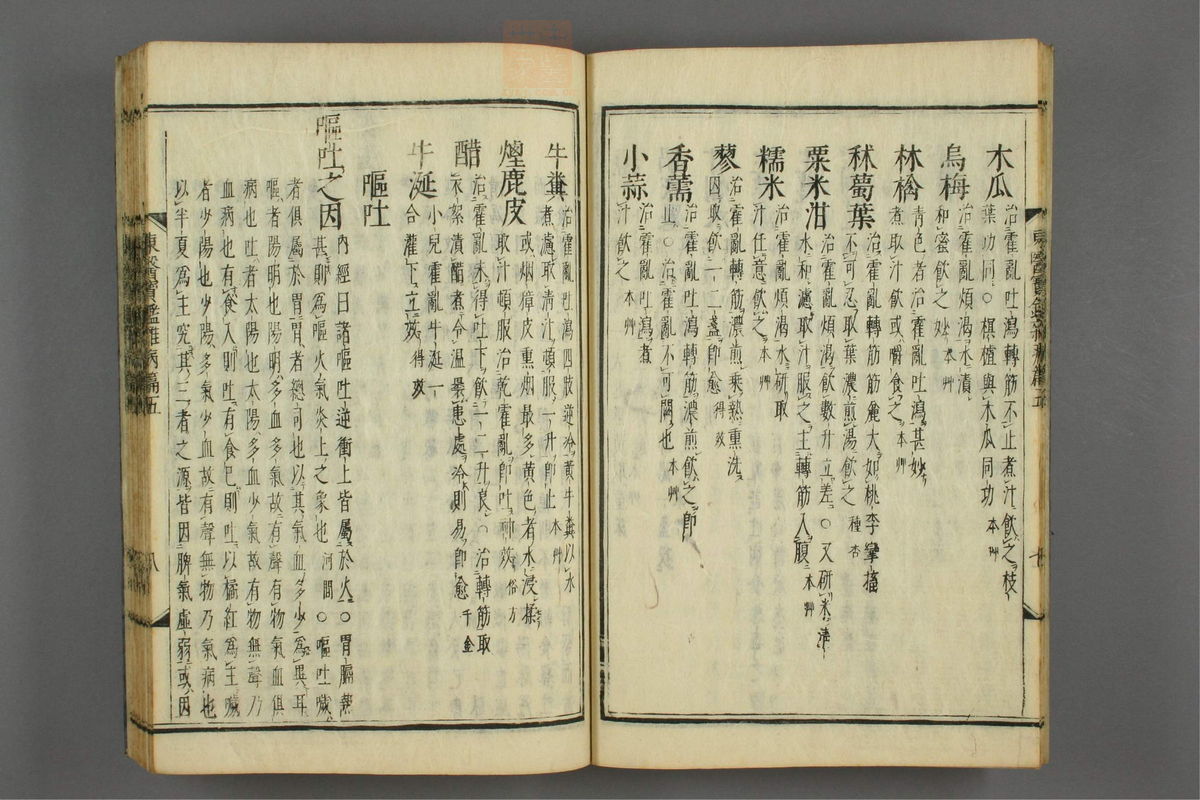 木瓜 治霍亂吐瀉轉筋不止煮汁飮之枝
葉功同○榠樝與木瓜同功 本艸
烏梅 治霍亂煩渴水漬
和蜜飮之妙 本艸
林檎 青色者治霍亂吐瀉甚妙
煮取汁飮或嚼食之 本艸
秫蒭葉 治霍亂轉筋筋麄大如桃李攣搐
不可忍取葉濃煎湯飮之 種杏
粟米泔 治霍亂煩渴飮數升立差○又研米淸
水和濾取汁服之主轉筋入腹 本艸
糯米 治霍亂煩渴水研取
汁任意飮之 本艸
蓼 治霍亂轉筋濃煎乘熱熏洗
因取飮一二盞卽愈 得效
香薷 治霍亂吐瀉轉筋濃煎飮之卽
止○治霍亂不可闕也 本艸
小蒜 治霍亂吐瀉煮
汁飮之 本艸
牛糞 治霍亂吐瀉四肢逆冷黃牛糞以水
煮濾取淸汁頓服一升卽止 本艸
煙鹿皮 或烟獐皮熏烟最多黃色者水浸揉
取汁頓服治乾霍亂卽吐神效 俗方
醋 治霍亂未得吐下飮一二升良○治轉筋取
衣絮漬醋煮令溫裹患處冷則易卽愈 千金
牛涎 小兒霍亂牛涎一
合灌下立效 得效
嘔吐
嘔吐之因 內經曰諸嘔吐逆衝上皆屬於火○胃膈熱
甚則爲嘔火氣炎上之象也 河間 ○嘔吐噦
者俱屬於胃胃者總司也以其氣血多少爲異耳
嘔者陽明也陽明多血多氣故有聲有物氣血俱
病也吐者太陽也太陽多血少氣故有物無聲乃
血病也有食入則吐有食已則吐以橘紅爲主噦
者少陽也少陽多氣少血故有聲無物乃氣病也
以半夏爲主究其三者之源皆因脾氣虛弱或因
東醫寶鑑雜病篇五
八